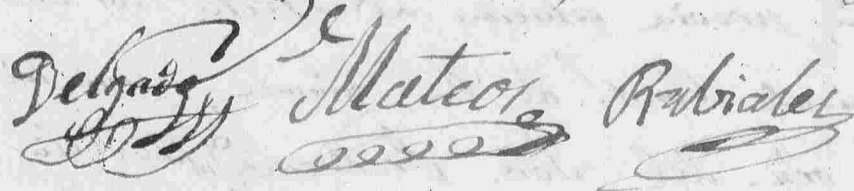 Delgado Mateos Rubiales